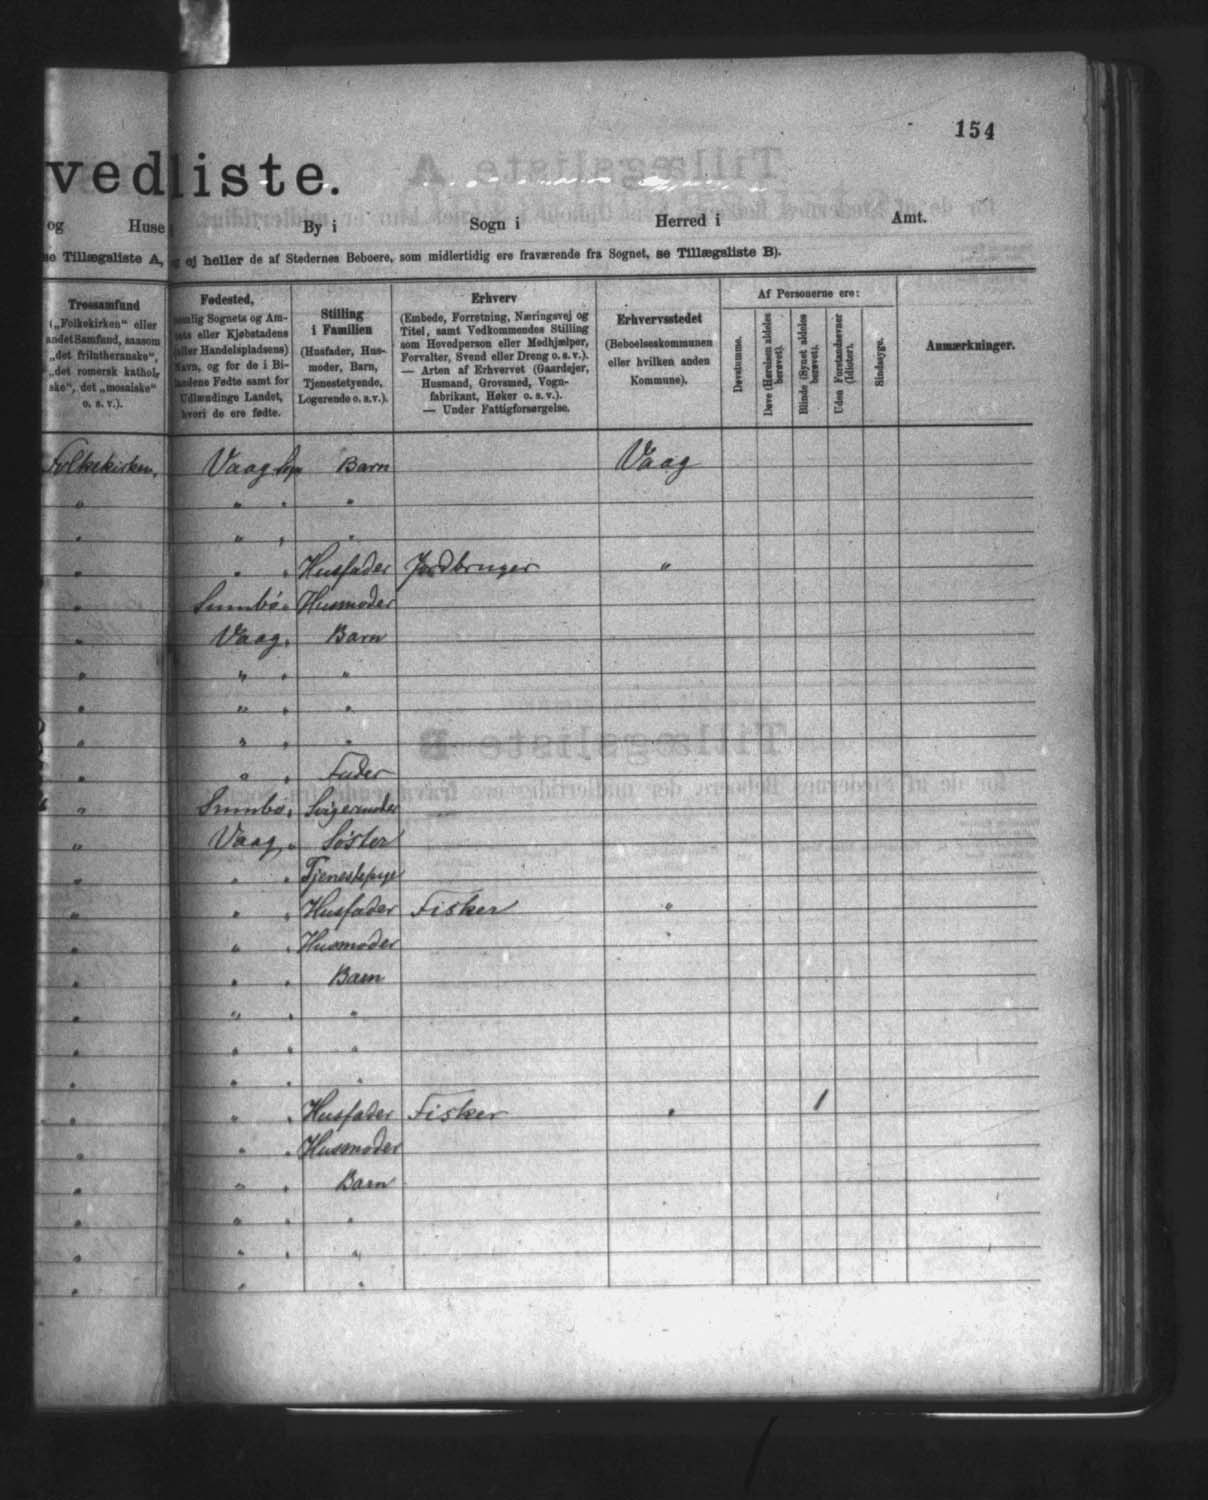 154
vedliste.
og Huse By i Sogn i Herred i Amt.
se Tillægsliste A, og ej heller de af Stedernes Beboere, som midlertidig ere fraværende fra Sognet, se Tillægsliste B).
Trossamfund
(„Folkekirken“ eller
andet Samfund, saasom
„det frilutheranske“,
„det romersk katholske“,
det „mosaiske“
o. s. v.).
Fødested,
nemlig Sognets og Amtets
eller Kjøbstadens
(eller Handelspladsens)
Navn, og for de i Bilandene
Fødte samt for
Udlændinge Landet,
hvori de ere fødte.
Stilling
i Familien
(Husfader, Husmoder,
Barn,
Tjenestetyende,
Logerende o. s. v.).
Erhverv
(Embede, Forretning, Næringsvej og
Titel, samt Vedkommendes Stilling
som Hovedperson eller Medhjælper,
Forvalter, Svend eller Dreng o. s. v.).
— Arten af Erhvervet (Gaardejer,
Husmand, Grovsmed, Vognfabrikant,
Høker o. s. v.).
— Under Fattigforsørgelse.
Erhvervsstedet
(Beboelseskommunen
eller hvilken anden
Kommune).
Af Personerne ere:
Døvstumme.
Døve (Hørelsen aldeles
berøvet).
Blinde (Synet aldeles
berøvet).
Uden Forstandsevner
(Idioter).
Sindssyge.
Anmærkninger.
Folkekirken, Vaag Sogn Barn Vaag
" " " "
" " " "
" " " Husfader Jordbruger "
" Sumbø " Husmoder
" Vaag " Barn
" " " "
" " " "
" " " "
" " " Fader
" Sumbø " Svigermoder
" Vaag " Søster
" " " Tjenestepige
" " " Husfader Fisker "
" " " Husmoder
" " " Barn
" " " "
" " " "
" " " "
" " " Husfader Fisker " 1
" " " Husmoder
" " " Barn
" " "
" " " "
" " "